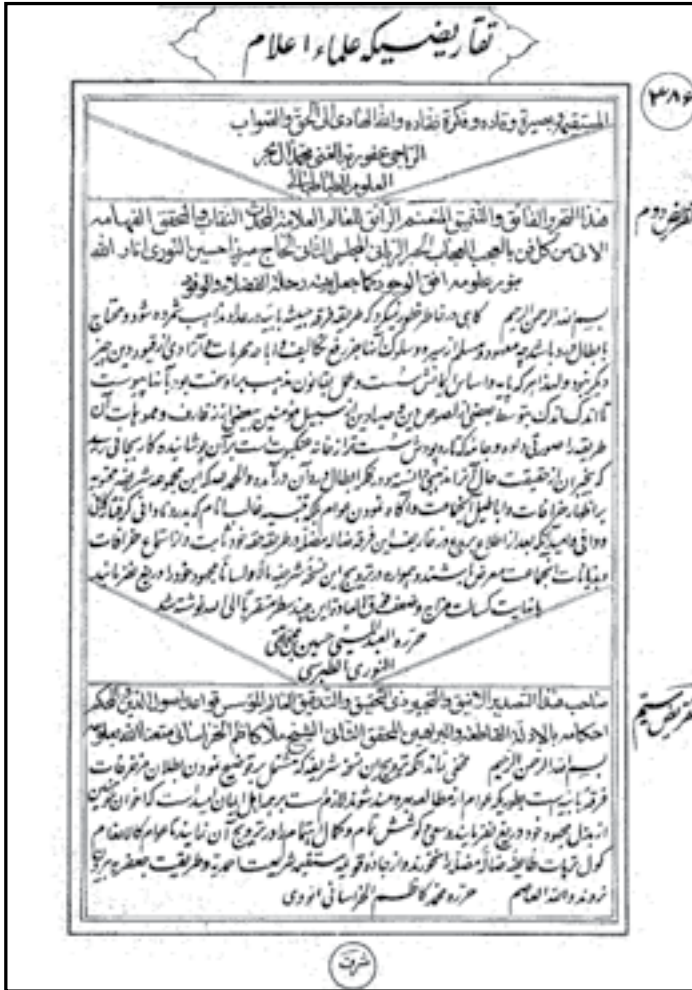 تقاریضیکه علماء اعلام
۳۸۶
المستقیم ببصیرة وقاده وفکرة نقاده والله الهادی الی الحق والصواب
الراجی عفو ربه الغنی محمد آل بحر
العلوم الطباطبائی
تقریض دوم
هذا التقریر الفائق والتنمیق الرائق للعالم العلامة المحدث النقاب والمحقق الفهامه
الاتی من کل فن بالعجب العجاب الحبر الربانی المجلسی الثانی الحاج میرزا حسین النوری انار الله
بنور علومه افق الوجود کما جعل بیته رحلة الفضلاء والوفود
بسم الله الرحمن الرحیم گاهی در خاطر خطور نمیکرد که طریقه فرقه خبیثه بابیه در عداد مذاهب شمرده شود و محتاج
بابطال و رد باشد چه معهود و مسلم از سیره و سلوک آنها جز رفع تکالیف و اباحه محرمات و آزادی از قیود دین چیز
دیگر نبود و لهذا هر که پایه و اساس ایمانش سست و عمل بقانون مذهب بر او سخت بود با آنها پیوست
تا اندک اندک بتوسط بعضی از لصوص دین و صیادین سبیل مؤمنین ببعضی از زخارف و مموهات آن
طریقه را صورتی داده و جامه که تار و پودش سست تر از خانه عنکبوت است بر آن پوشانیده کار بجائی رسید
که بیخبران از حقیقت حال آنرا مذهبی دانسته و در فکر ابطال و رد آن درآمده والحمد لله که این مجموعه شریفه محتویه
بر اظهار خرافات و اباطیل این جماعت و آگاه نمودن عوام بلکه تنبیه غالب انام که بدرد نادانی گرفتارند کافی
و وافی و امید آنکه بعد از اطلاع بر بدع و زخاریف این فرقه ضاله مضله بر طریقه حقه خود ثابت و از استماع خرافات
و هذیانات این جماعت معرض باشند و همواره در ترویج این نسخه شریفه مالا و لسانا مجهود خود را دریغ نفرمایند
با نهایت کسالت مزاج و ضعف فوق العاده این چند سطر متقربا الی الله نوشته شد
حرره العبد المسیء حسین بن محمد تقی
النوری الطبرسی
تقریض سیم
صاحب هذا التصدیر الانیق والتحریر ذی التحقیق والتدقیق العالم المؤسس قواعد اصول الدین المحکم
احکامه بالادلة القاطعة والبراهین المحقق الثانی الشیخ ملا کاظم الخراسانی متعنا الله بعلومه
بسم الله الرحمن الرحیم مخفی نماند آنکه ترویج این نسخه شریفه که مشتمل بر توضیح نمودن بطلان مزخرفات
فرقه بابیه است بطوریکه عوام از مطالعه بهره مند شوند لازم است بر جمیع اهل ایمان است که اخوان مؤمنین
از بذل مجهود خود دریغ نفرمایند و سعی و کوشش تام و کمال اهتمام را در ترویج آن نمایند تا عوام کالانعام
گول ترهات طائفه ضاله مضله را نخورند و از جاده قویمه مستقیمه شریعت احمدیه و طریقت جعفریه بیرون
نروند والله العاصم حرره محمد کاظم الخراسانی
شرف